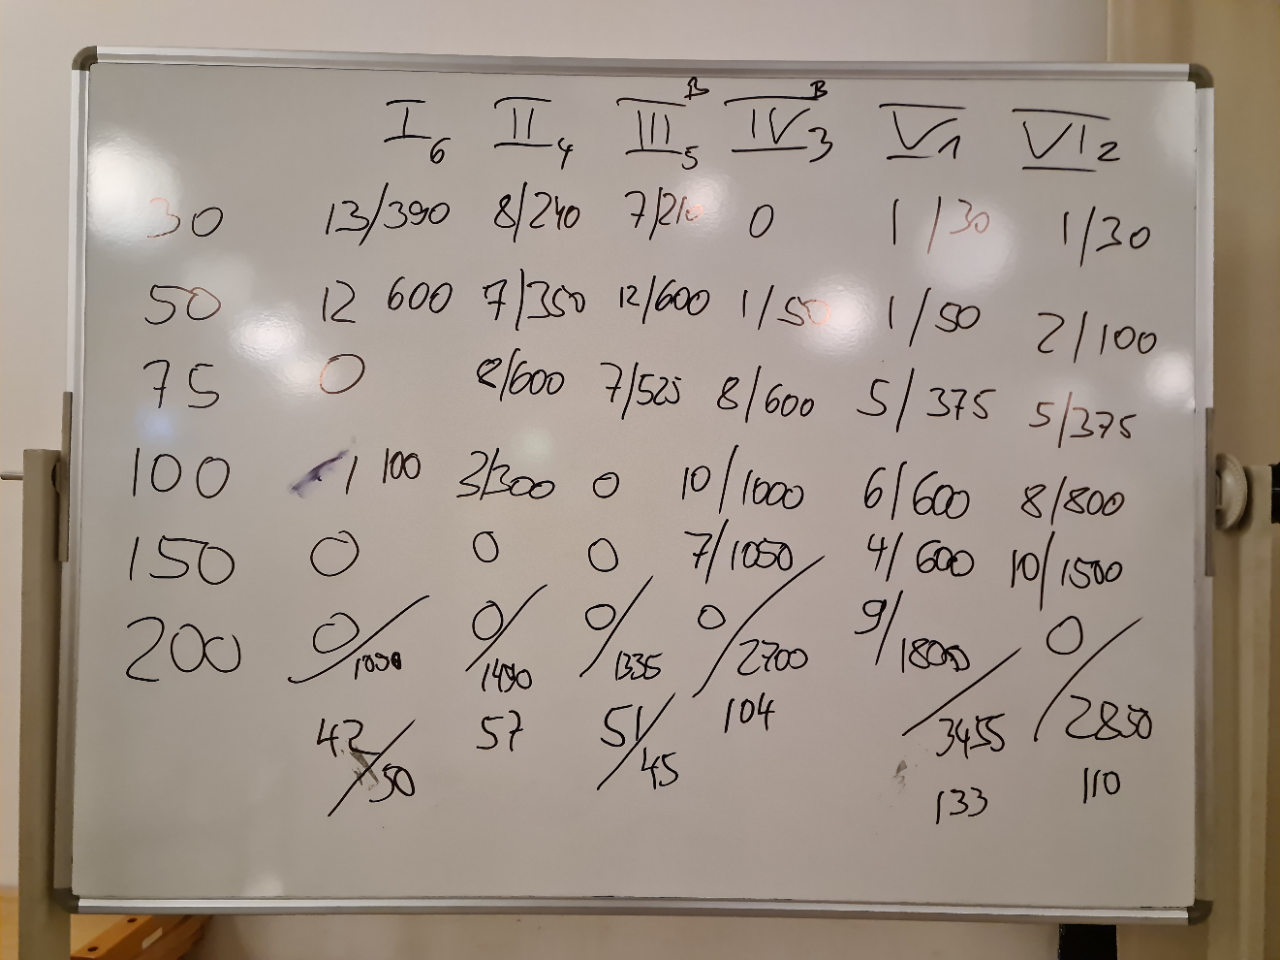 I6 II4 III5 B IV3 B V1 VI2
30 13/390 8/240 7/210 0 1/30 1/30
50 12 600 7/350 12/600 1/50 1/50 2/100
75 0 8/600 7/525 8/600 5/375 5/375
100 1 100 3/300 0 10/1000 6/600 8/800
150 0 0 0 7/1050 4/600 10/1500
200 0/1090 0/1490 0/1335 0/2700 9/1800 0/2850
3455
42/50 57 51/45 104 133 110